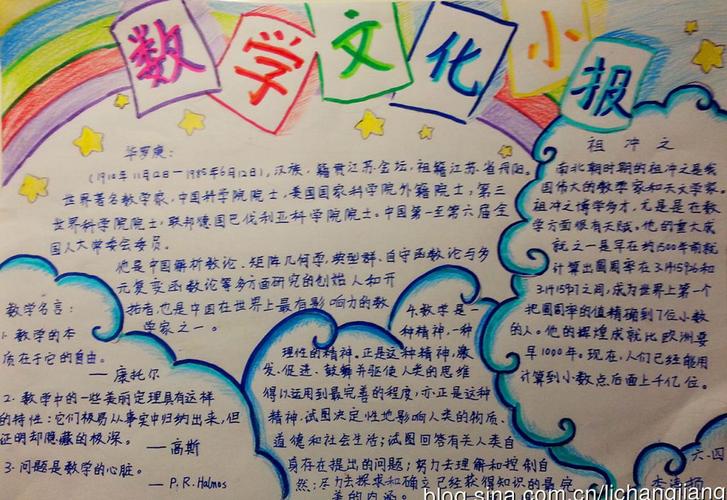 数学文化小报
华罗庚：
(1910年11月12日—1985年6月12日)，汉族，籍贯江苏金坛，祖籍江苏省丹阳。
世界著名数学家，中国科学院院士，美国国家科学院外籍院士，第三
世界科学院院士，联邦德国巴伐利亚科学院院士。中国第一至第六届全
国人大常委会委员。
他是中国解析数论、矩阵几何学、典型群、自守函数论与多
元复变函数论等多方面研究的创始人和开
拓者，也是中国在世界上最有影响力的数
学家之一。
祖冲之
南北朝时期的祖冲之是我
国伟大的数学家和天文学家
祖冲之博学多才，尤其是在数
学方面很有天赋。他的重大成
就之一是早在约1500年前就
计算出圆周率在3.1415926和
3.1415927之间，成为世界上第一个
把圆周率的值精确到7位小数
的人。他的辉煌成就比欧洲要
早1000年。现在，人们已经能用
计算到小数点后面上千亿位。
数学名言：
1. 数学的本
质在于它的自由。
—康托尔
2. 数学中的一些美丽定理具有这样
的特性：它们极易从事实中归纳出来，但
证明却隐藏的极深。
—高斯
3. 问题是数学的心脏。
—P.R.Halmos
4. 数学是一
种精神，一种
理性的精神。正是这种精神，激
发、促进、鼓舞并驱使人类的思维
得以运用到最完善的程度，亦正是这种
精神，试图决定性地影响人类的物质、
道德和社会生活；试图回答有关人类自
身存在提出的问题；努力去理解和控制自
然；尽力去探求和确立已经获得知识的最完
美的内涵。
六、四
blog.sina.com.cn/lichangjiang